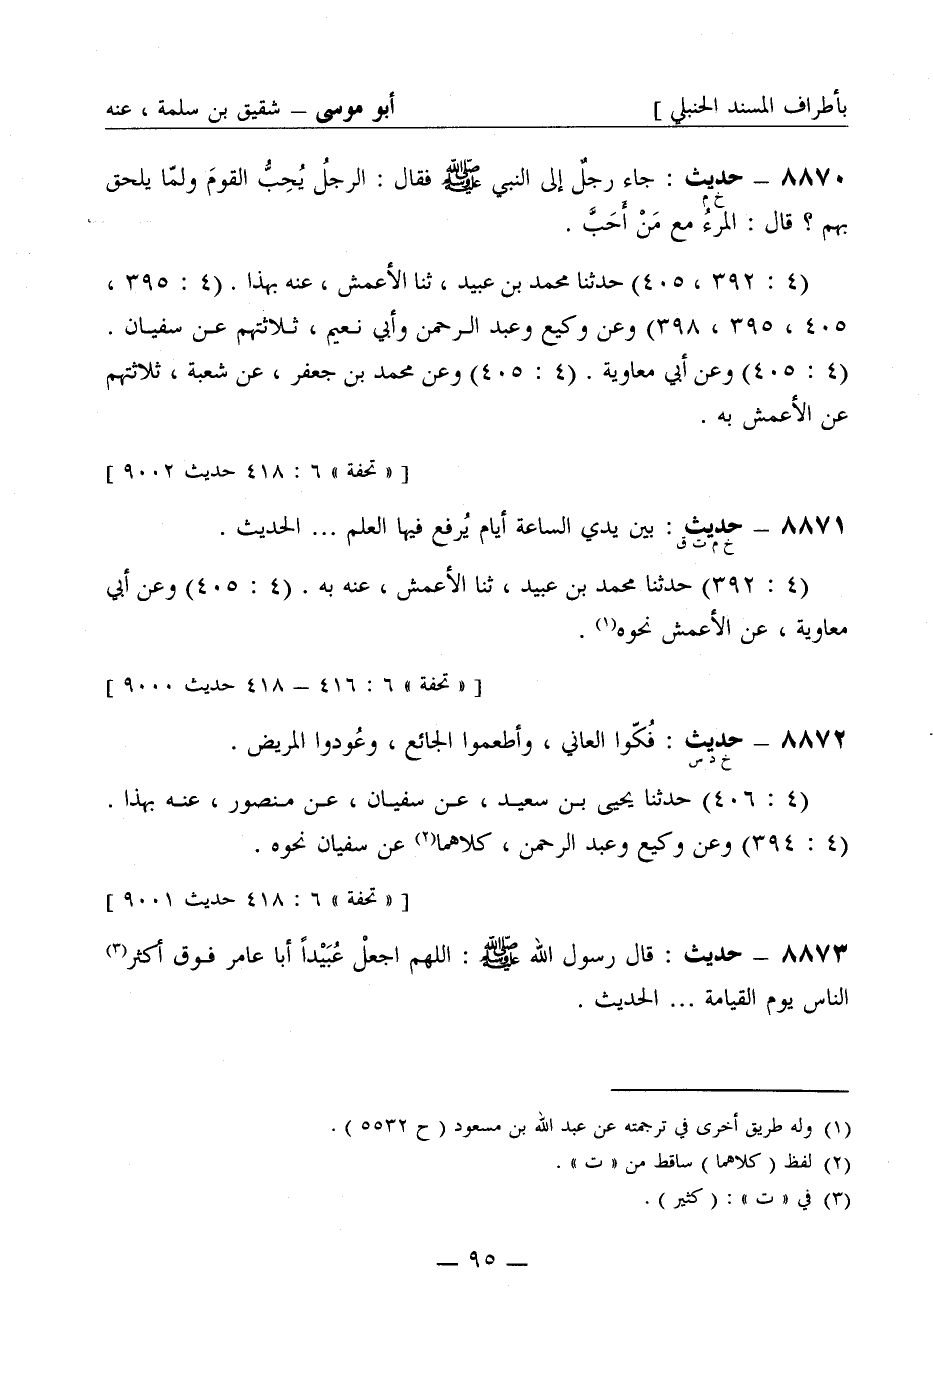 بأطراف المسند الحنبلي ] أبو موسى – شقيق بن سلمة ، عنه
٨٨٧٠ – حديث : جاء رجلٌ إلى النبي ﷺ فقال : الرجلُ يُحِبُّ القومَ ولمّا يلحق
خ م
بهم ؟ قال : المرءُ مع مَنْ أَحَبَّ .
(٤ : ٣٩٢ ، ٤٠٥) حدثنا محمد بن عبيد ، ثنا الأعمش ، عنه بهذا . (٤ : ٣٩٥ ،
٤٠٥ ، ٣٩٥ ، ٣٩٨) وعن وكيع وعبد الرحمن وأبي نعيم ، ثلاثتهم عن سفيان .
(٤ : ٤٠٥) وعن أبي معاوية . (٤ : ٤٠٥) وعن محمد بن جعفر ، عن شعبة ، ثلاثتهم
عن الأعمش به .
[ « تحفة » ٦ : ٤١٨ حديث ٩٠٠٢ ]
٨٨٧١ – حديث : بين يدي الساعة أيام يُرفع فيها العلم ... الحديث .
خ م ت ق
(٤ : ٣٩٢) حدثنا محمد بن عبيد ، ثنا الأعمش ، عنه به . (٤ : ٤٠٥) وعن أبي
معاوية ، عن الأعمش نحوه(١) .
[ « تحفة » ٦ : ٤١٦ – ٤١٨ حديث ٩٠٠٠ ]
٨٨٧٢ – حديث : فُكّوا العاني ، وأطعموا الجائع ، وعُودوا المريض .
خ د س
(٤ : ٤٠٦) حدثنا يحيى بن سعيد ، عن سفيان ، عن منصور ، عنه بهذا .
(٤ : ٣٩٤) وعن وكيع وعبد الرحمن ، كلاهما(٢) عن سفيان نحوه .
[ « تحفة » ٦ : ٤١٨ حديث ٩٠٠١ ]
٨٨٧٣ – حديث : قال رسول الله ﷺ : اللهم اجعلْ عُبَيْداً أبا عامر فوق أكثر(٣)
الناس يوم القيامة ... الحديث .
(١) وله طريق أخرى في ترجمته عن عبد الله بن مسعود ( ح ٥٥٣٢ ) .
(٢) لفظ ( كلاهما ) ساقط من « ت » .
(٣) في « ت » : ( كثير ) .
– ٩٥ –